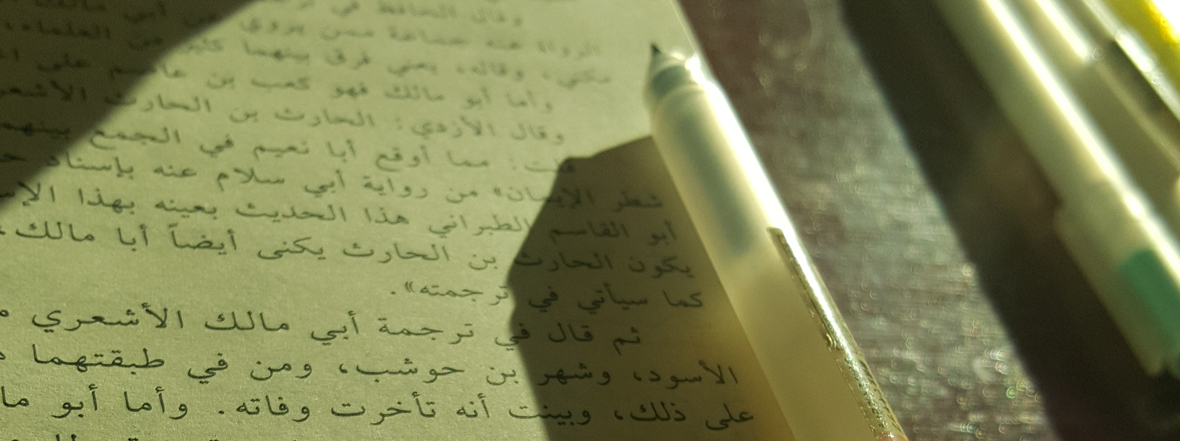 وقال الحافظ في
الرواة عنه جماعة ممن يروي عن أبي مالك
مكني، وقاله، يعني فرق بينهما كثير من العلماء،
وأما أبو مالك فهو كعب بن عاصم على
وقال الأزدي: الحارث بن الحارث الأشعر
قلت: مما أوقع أبا نعيم في الجمع بينهما
شطر الإيمان» من رواية أبي سلام عنه بإسناد
أبو القاسم الطبراني هذا الحديث بعينه بهذا الإس
يكون الحارث بن الحارث يكنى أيضاً أبا مالك،
كما سيأتي في ترجمته».
ثم قال في ترجمة أبي مالك الأشعري
الأسود، وشهر بن حوشب، ومن في طبقتهما
على ذلك، وبينت أنه تأخرت وفاته. وأما أبو ما